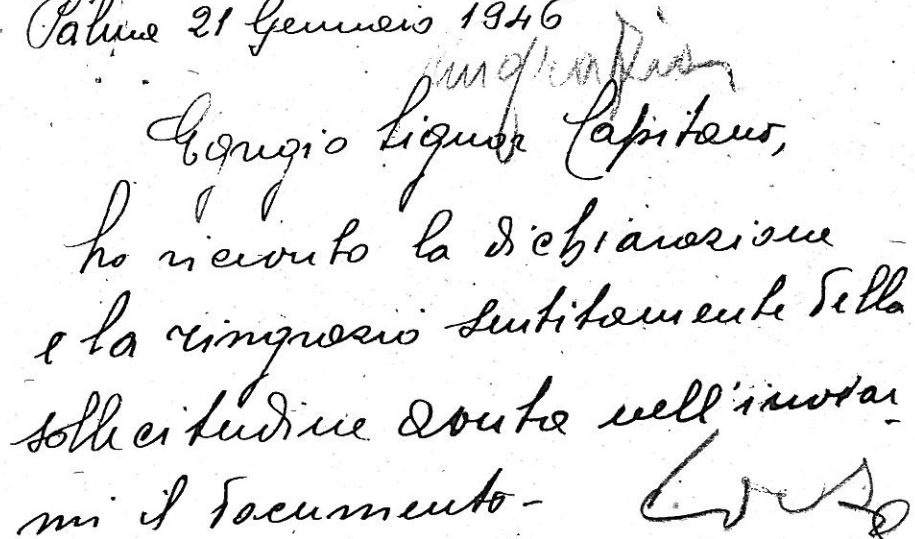 Palma 21 Gennaio 1946
Egregio Signor Capitano,
ho ricevuto la dichiarazione
e la ringrazio sentitamente della
sollecitudine avuta nell'inviar-
mi il documento-